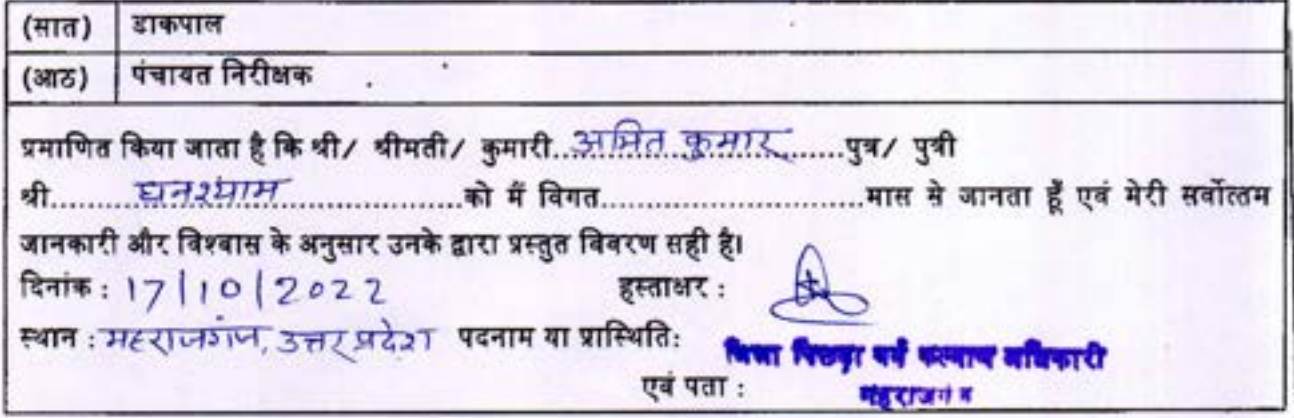 (सात) डाकपाल
(आठ) पंचायत निरीक्षक
प्रमाणित किया जाता है कि श्री/ श्रीमती/ कुमारी...अमित कुमार.......पुत्र/ पुत्री
श्री..........घनश्याम......................को मैं विगत............................मास से जानता हूँ एवं मेरी सर्वोत्तम
जानकारी और विश्वास के अनुसार उनके द्वारा प्रस्तुत विवरण सही है।
दिनांक : 17|10|2022 हस्ताक्षर :
स्थान : महराजगंज, उत्तर प्रदेश पदनाम या प्रास्थिति:
जिला पिछड़ा वर्ग कल्याण अधिकारी
एवं पता : महराजगंज